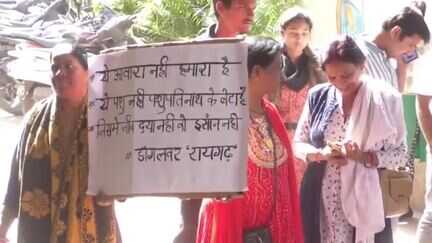 • ये आवारा नहीं हमारा है
• ये पशु नहीं पशुपतिनाथ के बेटा है
• जिसमें नीम दया नहीं वो इंसान नहीं
• डॉगलवर 'रायगढ़'